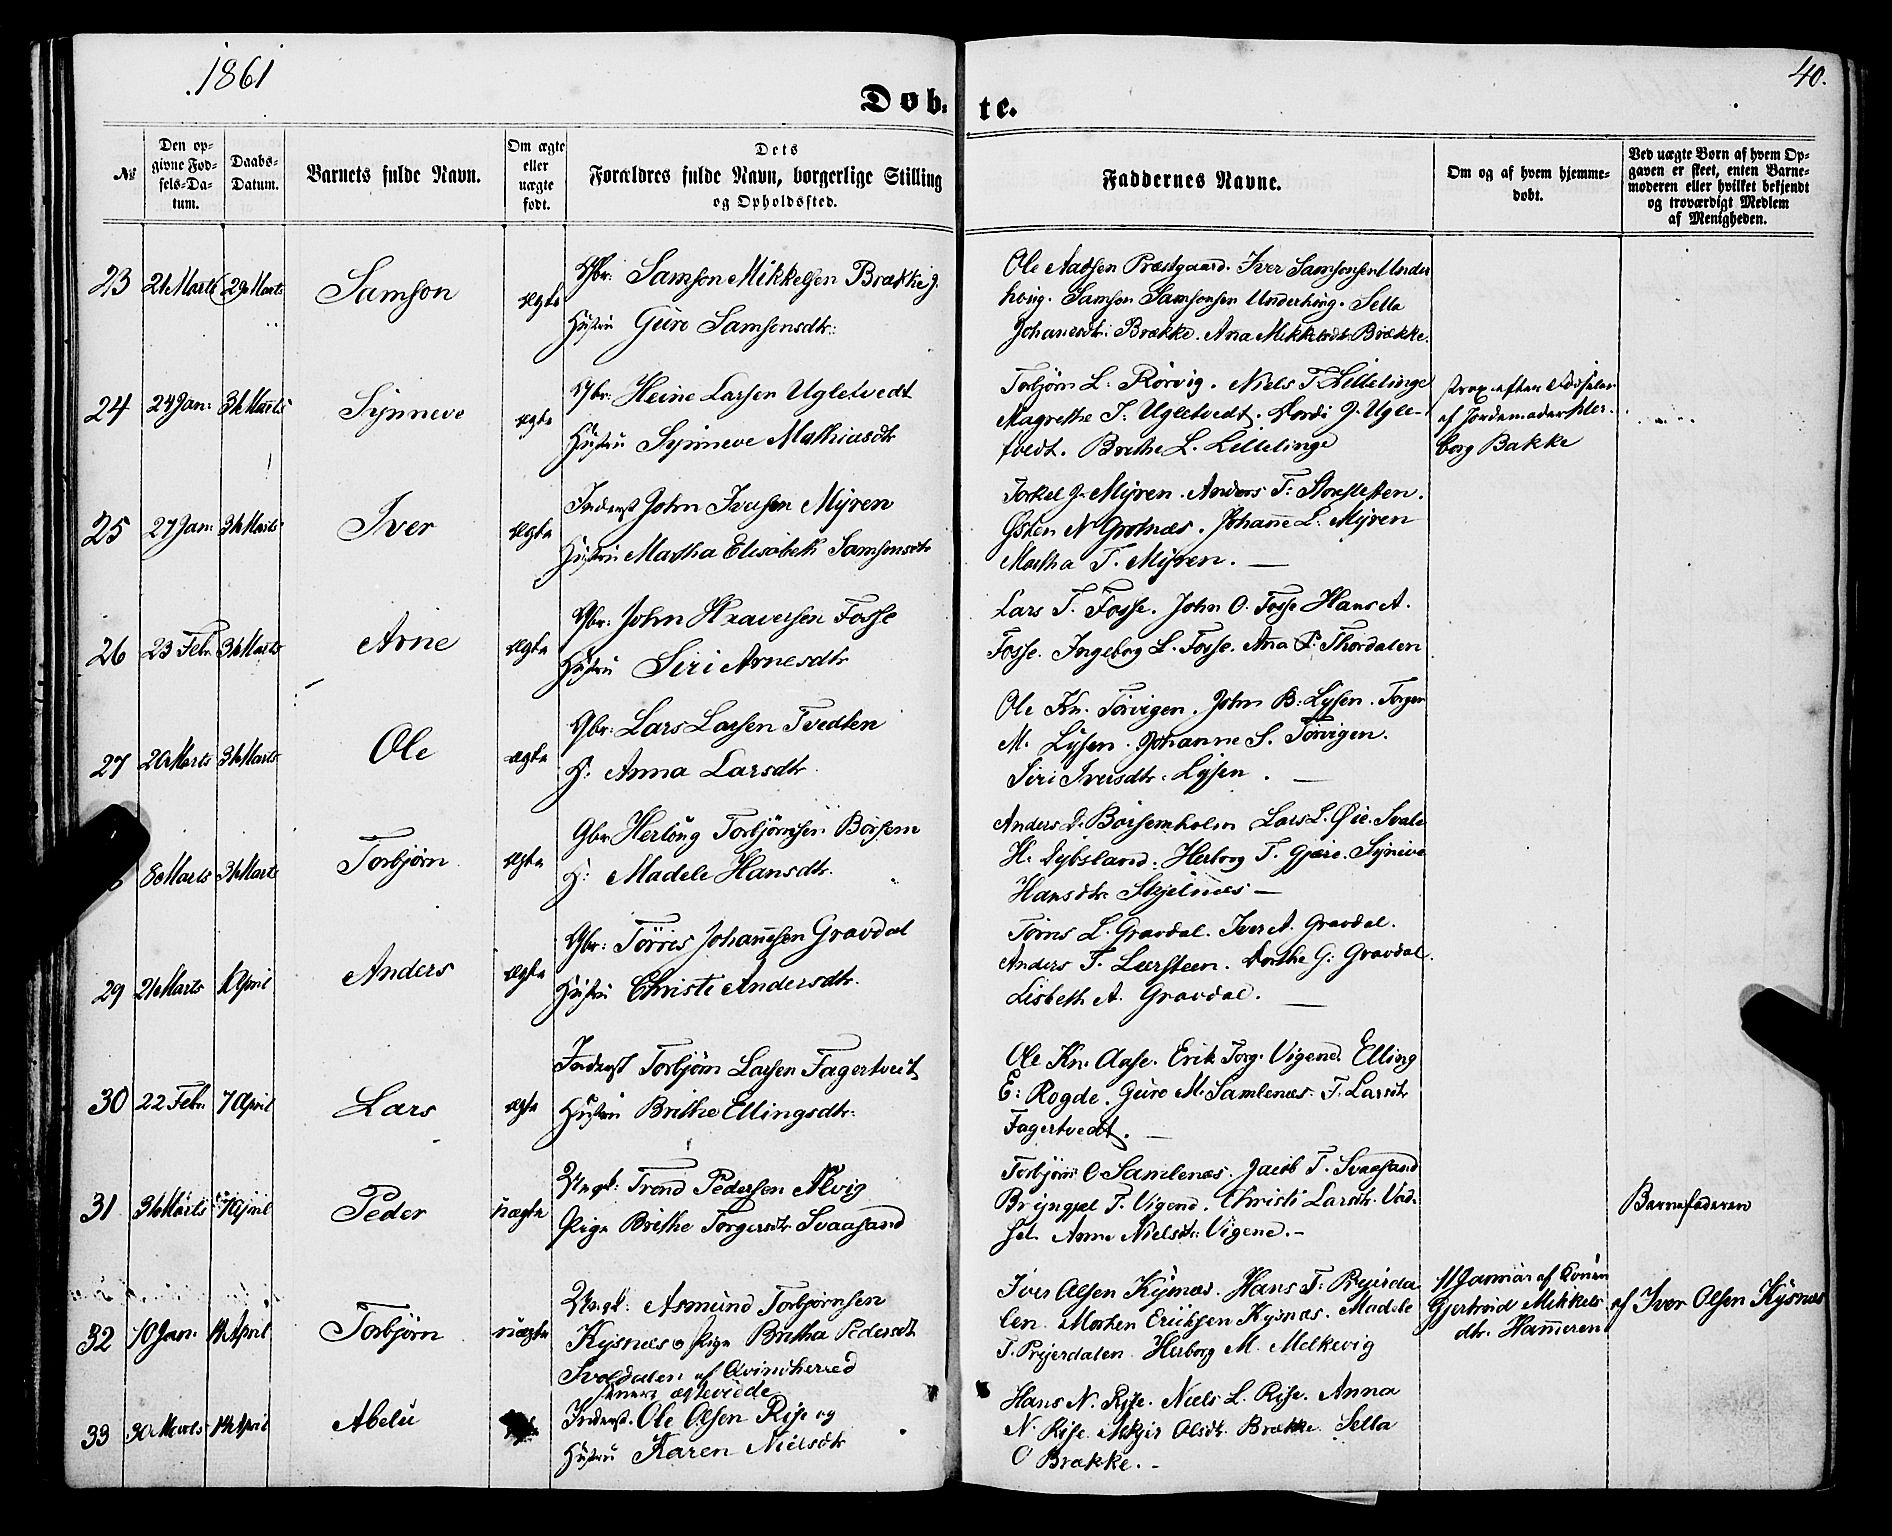 1861
40.
Døb-te.
№
Den op-
givne Fød-
sels-Da-
tum.
Daabs-
Datum.
Barnets fulde Navn.
Om ægte
eller
uægte
født.
Dets
Forældres fulde Navn, borgerlige Stilling
og Opholdssted.
Faddernes Navne.
Om og af hvem hjemme-
døbt.
Ved uægte Børn af hvem Op-
gaven er skeet, enten Barne-
moderen eller hvilket bekjendt
og troværdigt Medlem
af Menigheden.
23 21 Marts 29 Marts Samson ægte
Gbr: Samson Mikkelsen Brække g.
Hustru Guro Samsonsdtr:
Ole Aadsen Præstgaard. Iver Samsonsen Under
houg. Samson Samsonsen Underhoug. Sella
Johanesdtr: Brække. Ana Mikkelsdtr Brække.
24 24 Jan: 31 Marts Synneve ægte
Gbr: Heine Larsen Ugletvedt
Hustru Synneve Mathiasdtr
Torbjørn L. Rørvig. Niels T. Lillelinge
Magrethe J: Ugletvedt. Dordi J. Ugle-
tvedt. Brithe L. Lillelinge
strax efter Fødselen
af Jordemoder Her-
borg Bakke
25 27 Jan: 31 Marts Iver ægte
Inderst John Iversen Myren
Hustru Martha Elisabeth Samsonsdtr
Torkel J. Myren. Anders T. Storesletten.
Østen N Grotnæs. Johane L. Myren
Martha T. Myren. —
26 23 Febr. 31 Marts Arne ægte
Gbr: John Haaversen Fosse
Hustru Siri Arnesdtr
Lars T. Fosse. John O. Fosse Hans A.
Fosse. Ingeborg L. Fosse. Ana P. Thordalen
27 20 Marts 31 Marts Ole ægte
Gbr: Lars Larsen Tvedten
H. Anna Larsdtr.
Ole Kn. Tørvigen. John B. Lysen. Torger
M. Lysen. Johanne S. Tørvigen.
Siri Iversdtr. Lysen. —
8 Marts 31 Marts Torbjørn ægte
Gbr Herloug Torbjørnsen Børsem
H: Madele Hansdtr.
Anders D. Børsemholm Lars L. Øie. Svale
H. Dybsland. Herborg T. Gjære. Syneve
Hansdtr. Skjelnæs —
29 21 Marts 1 April Anders ægte
Gbr: Tørres Johanesen Gravdal
Hustru Christi Andersdtr.
Tørris L. Gravdal. Iver A. Gravdal.
Anders T. Leersteen. Dorthe G: Gravdal.
Lisbeth A. Gravdal. —
30 22 Febr. 7 April Lars ægte
Inderst Torbjørn Larsen Fagertveit
Hustru Brithe Ellingsdtr:
Ole Kn. Aase. Erik Torg. Vigene. Elling
E: Rogde. Guro M. Samlenæs. T. Larsdtr
Fagertvedt. —
31 31 Marts 7 April Peder uægte
Ungk: Trond Pedersen Alvig
Pige Brithe Torgersdtr Svaasand
Torbjørn O Samlenæs. Jacob T. Svaasand
Bryngel T. Vigene. Christi Larsdtr. Vad-
sel. Anne Nielsdtr. Vigene. -
Barnefaderen
32 10 Jan: 14 April Torbjørn uægte
Ungk: Asmund Torbjørnsen
Kysnæs o Pige Britha Pedersdtr
Svaldalen af Qvindherred
Iver Olsen Kysnæs. Hans T. Preierda
len. Morten Eriksen Kysnæs. Madele
T. Prejerdalen. Herborg M. Melkevig
11 Januar af Konen
Gjertrud Mikkels
dtr. Hameren
af Iver Olsen Kysnæs
33 30 Marts 14 April Abelu
senere ægteviede
Inderst. Ole Olsen Rise og
Hustru Karen Nielsdtr
Hans N. Rise. Niels L. Rise. Anna
N. Rise. Olsdtr. Brække. Sella
O Brække. -